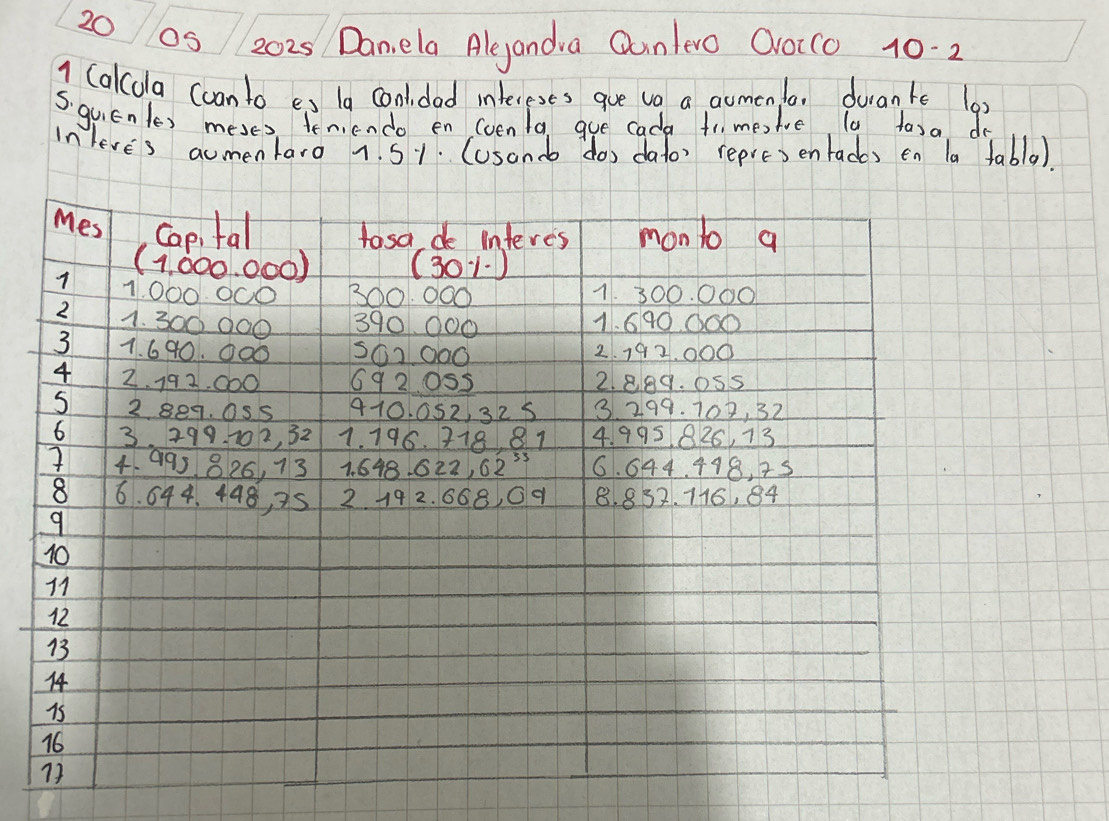 20 05 2025 Daniela Alejandra Quintero Orozco 10-2
1 Calcula Cuanto es la Cantidad intereses que va a aumentar durante los
siguientes meses, teniendo en cuenta que cada trimestre la tasa de
interés aumentara 1.5%. (usando dos datos representados en la tabla).
Mes Capital tasa de interes monto a
(1.000.000) (30%)
1 1.000.000 300.000 1.300.000
2 1.300.000 390.000 1.690.000
3 1.690.000 507.000 2.197.000
4 2.197.000 692.055 2.889.055
5 2.889.055 910.052,325 3.799.107,32
6 3.799.107,32 1.196.718,81 4.995.826,13
7 4.995.826,13 1.648.622,62 6.644.448,75
8 6.644.448,75 2.192.668,09 8.837.116,84
9
10
11
12
13
14
15
16
17